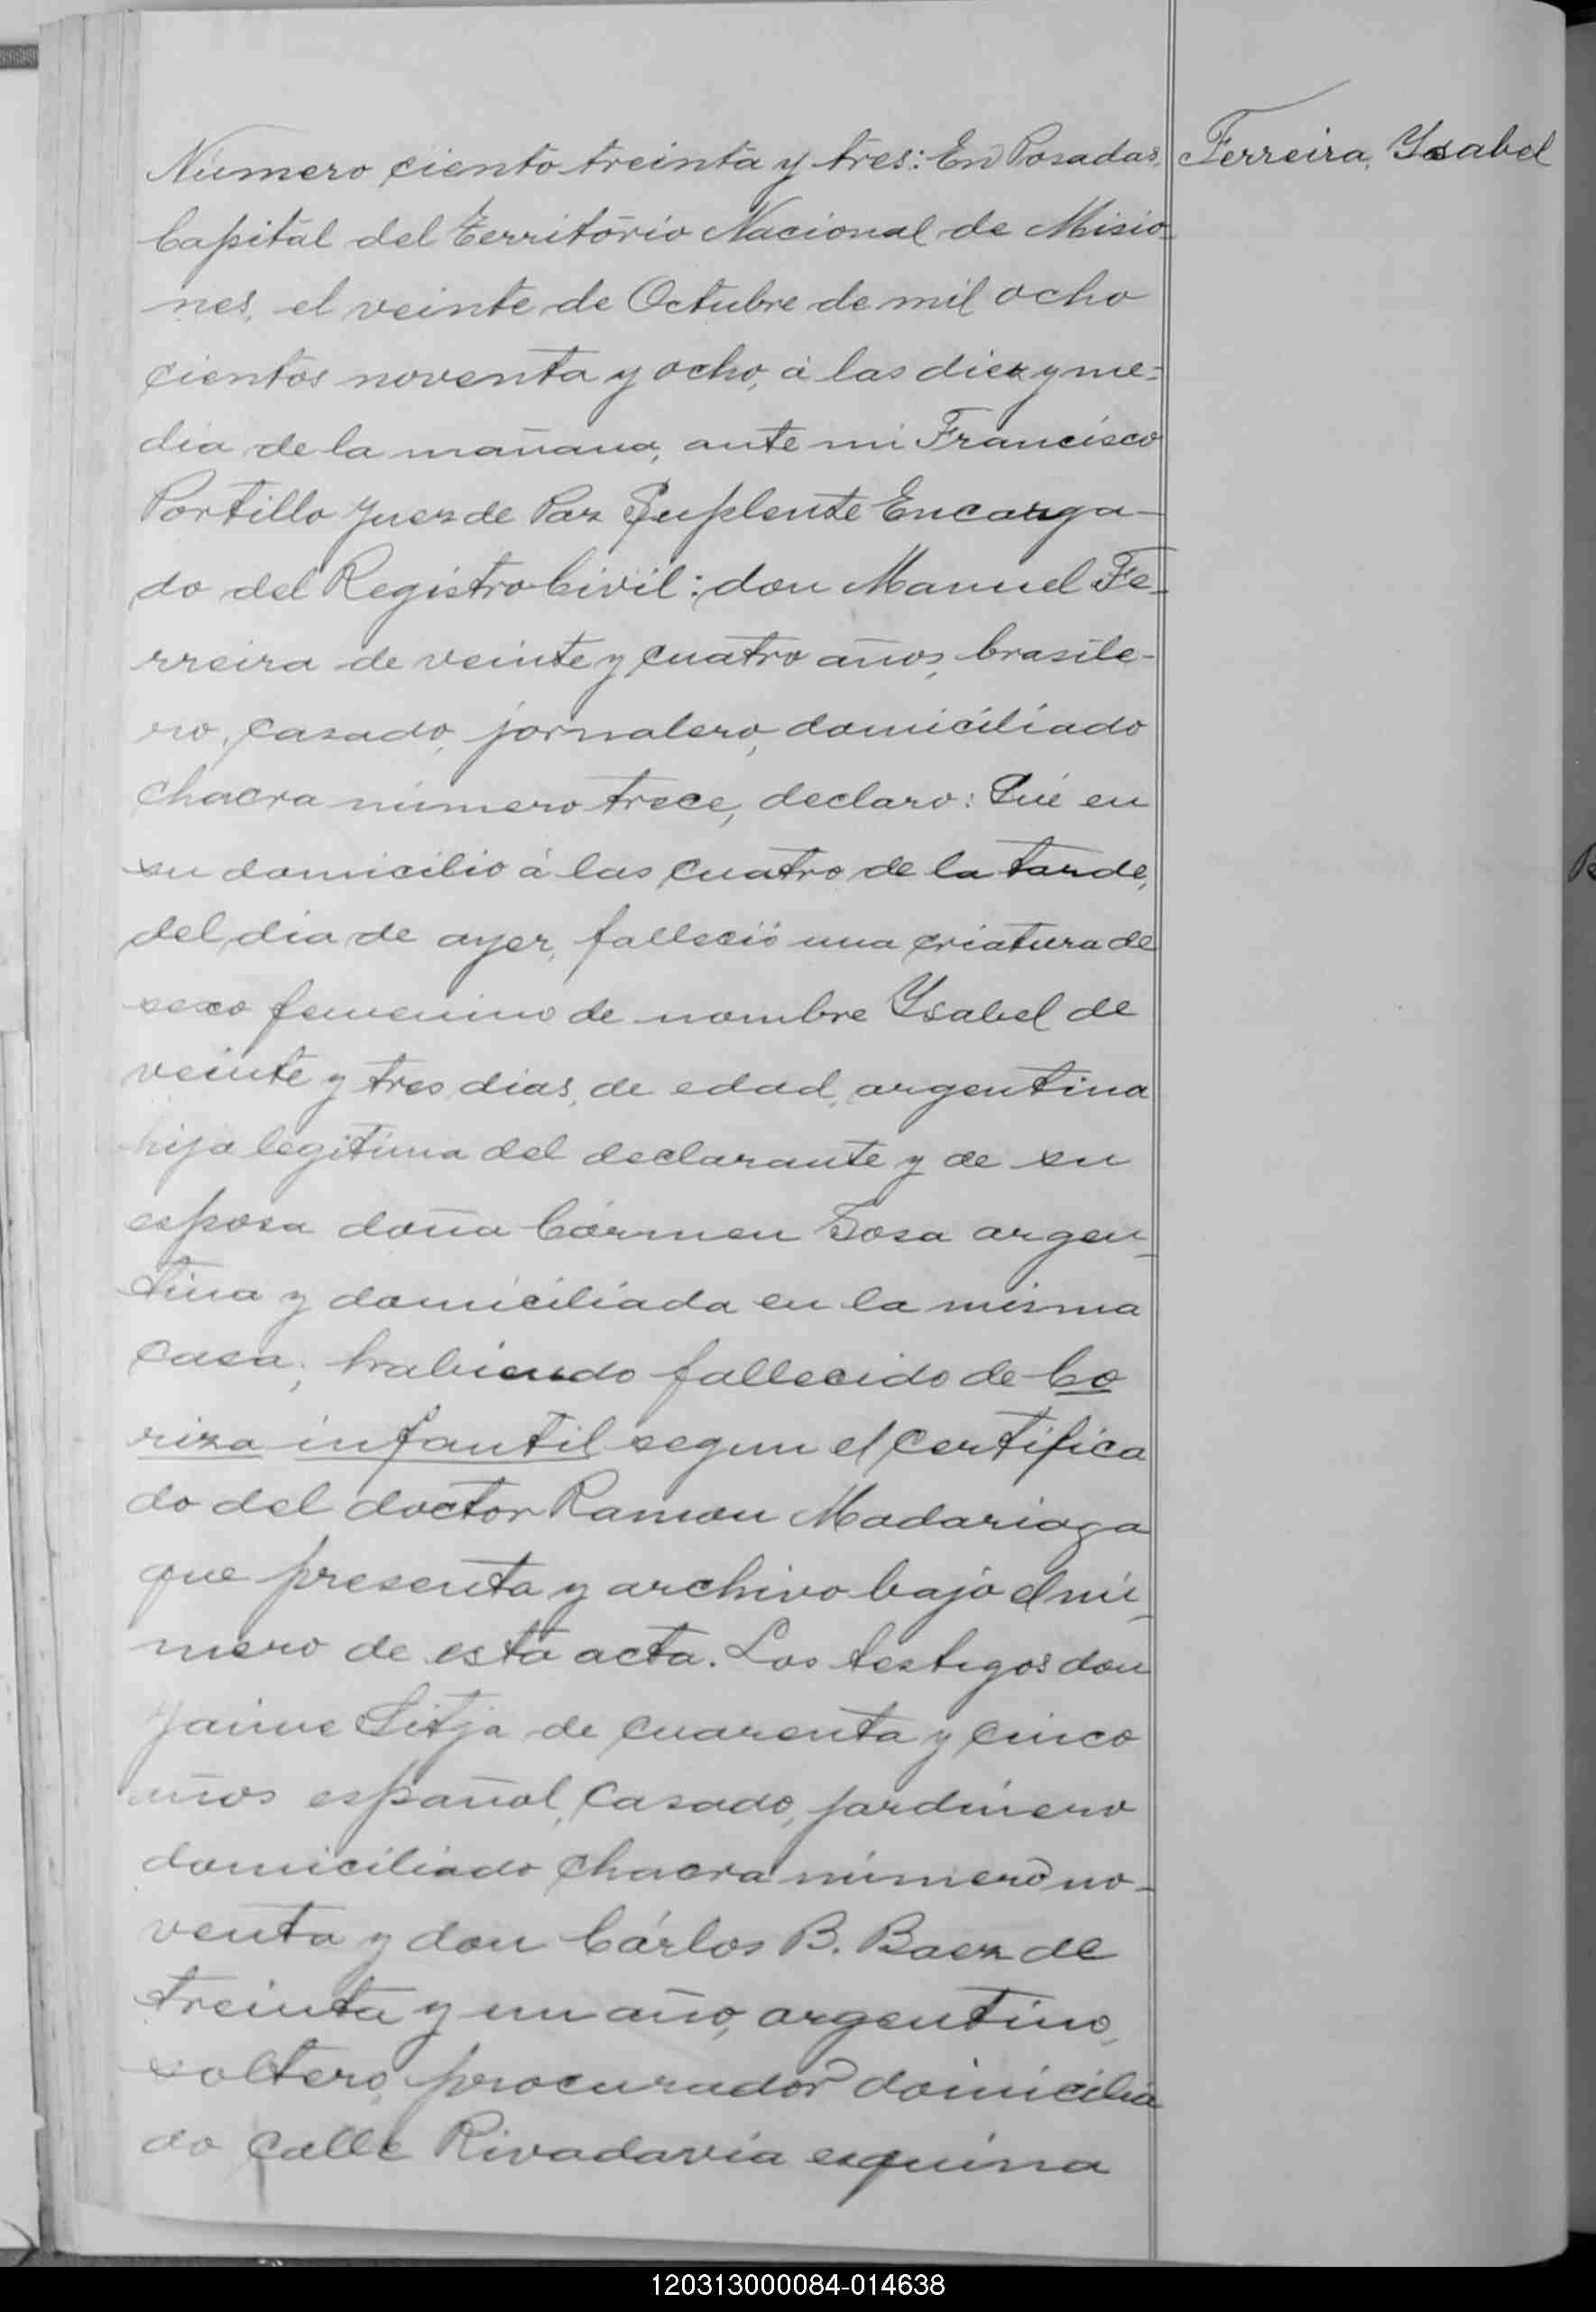 Número ciento treinta y tres: En Posadas, Ferreira, Ysabel
Capital del Territorio Nacional de Misio-
nes, el veinte de Octubre de mil ocho
cientos noventa y ocho, á las diez y me-
dia de la mañana, ante mi Francisco
Portillo Juez de Paz Suplente Encarga-
do del Registro Civil: don Manuel Fe-
rreira de veinte y cuatro años, brasile-
ro, casado, jornalero, domiciliado
chacra número trece, declaro: Qué en
su domicilio á las cuatro de la tarde,
del dia de ayer, falleció una criatura de
sexo femenino de nombre Ysabel de
veinte y tres dias, de edad, argentina
hija legitima del declarante y de su
esposa doña Cármen Sosa argen-
tina y domiciliada en la misma
casa; habiendo fallecido de Co
riza infantil segun el certifica
do del doctor Ramon Madariaga
que presenta y archivo bajo el nú-
mero de esta acta. Los testigos don
Jaime Sitja de cuarenta y cinco
años español, casado, jardinero
domiciliado chacra número no-
venta y don Cárlos B. Baez de
treinta y un año, argentino,
soltero, procurador domicilia
do calle Rivadavia esquina
120313000084-014638